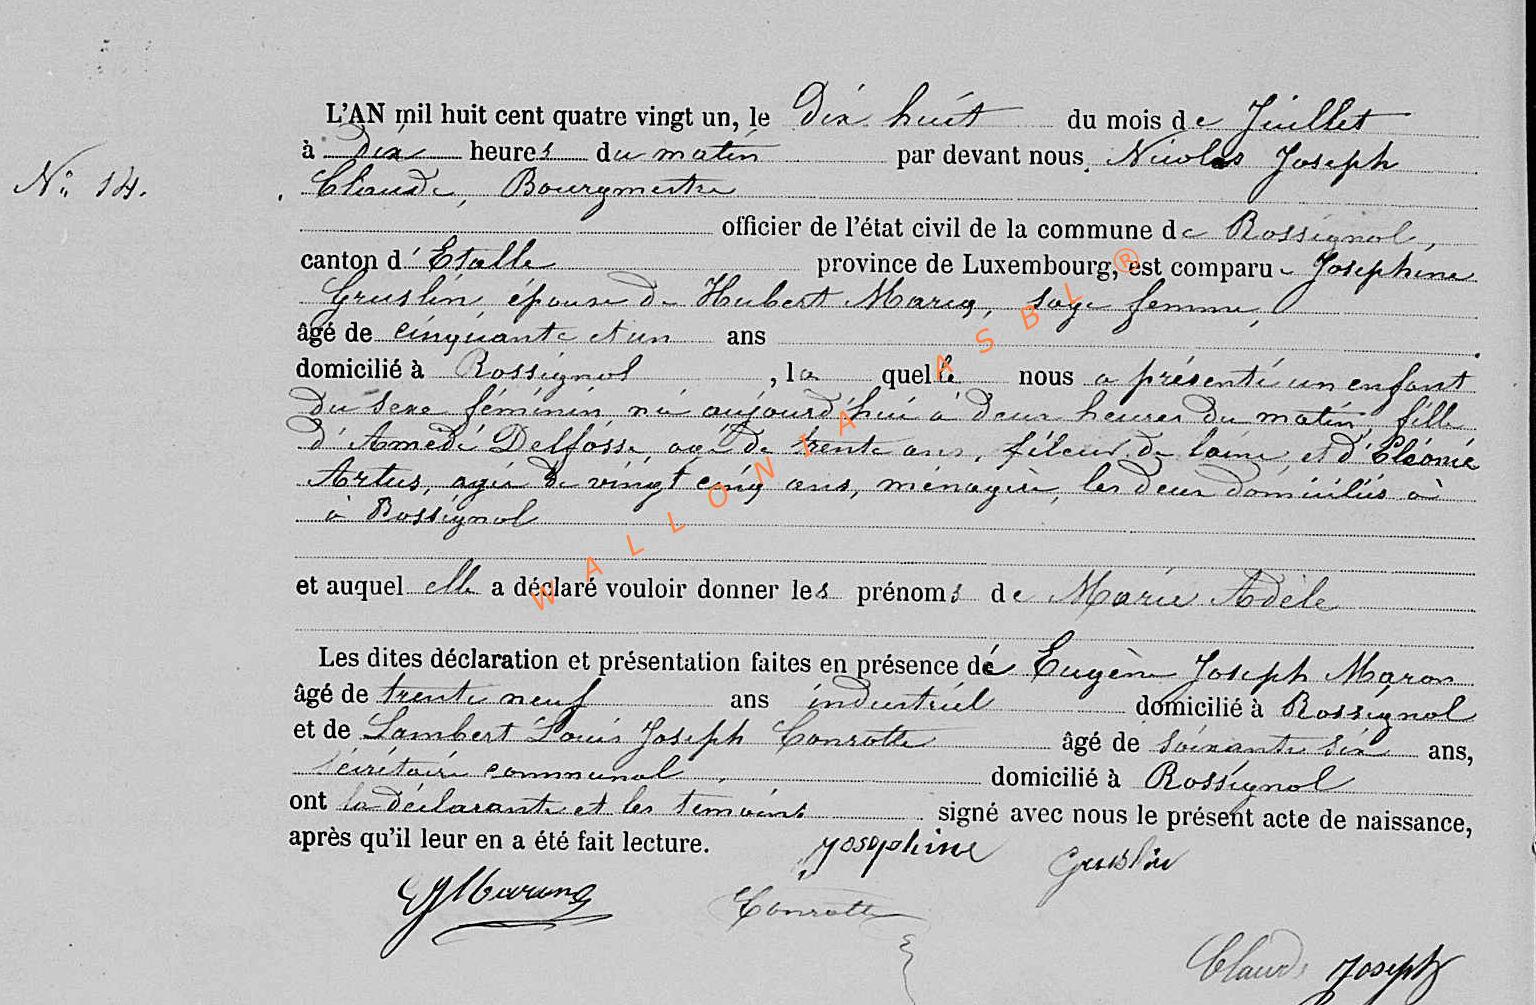 L'AN mil huit cent quatre vingt un, le Dix huit du mois de Juillet
à Dix heures du matin par devant nous Nicolas Joseph
N° 14.
Claude, Bourgmestre
officier de l'état civil de la commune de Rossignol,
canton d'Etalle province de Luxembourg, est comparue Josephine
Gruslin, épouse de Hubert Marcq, sage femme,
âgé de cinquante et un ans
domicilié à Rossignol, laquelle nous a présenté un enfant
du sexe féminin né aujourd'hui à deux heures du matin, fille
d'Amédé Delfosse, agé de trente ans, fileur de laine, et d'Eléonie
Artus, agée de vingt cinq ans, ménagère, les deux domiciliés à
à Rossignol
et auquel elle a déclaré vouloir donner les prénoms de Marie Adèle
Les dites déclaration et présentation faites en présence de Eugène Joseph Maron
âgé de trente neuf ans industriel domicilié à Rossignol
et de Lambert Louis Joseph Conrotte âgé de soixante six ans,
sécrétaire communal domicilié à Rossignol
ont la déclarante et les témoins signé avec nous le présent acte de naissance,
après qu'il leur en a été fait lecture.
Josephine Gruslin
EJMaron
Conrotte
Claude Joseph
WALLONIA ASBL ®